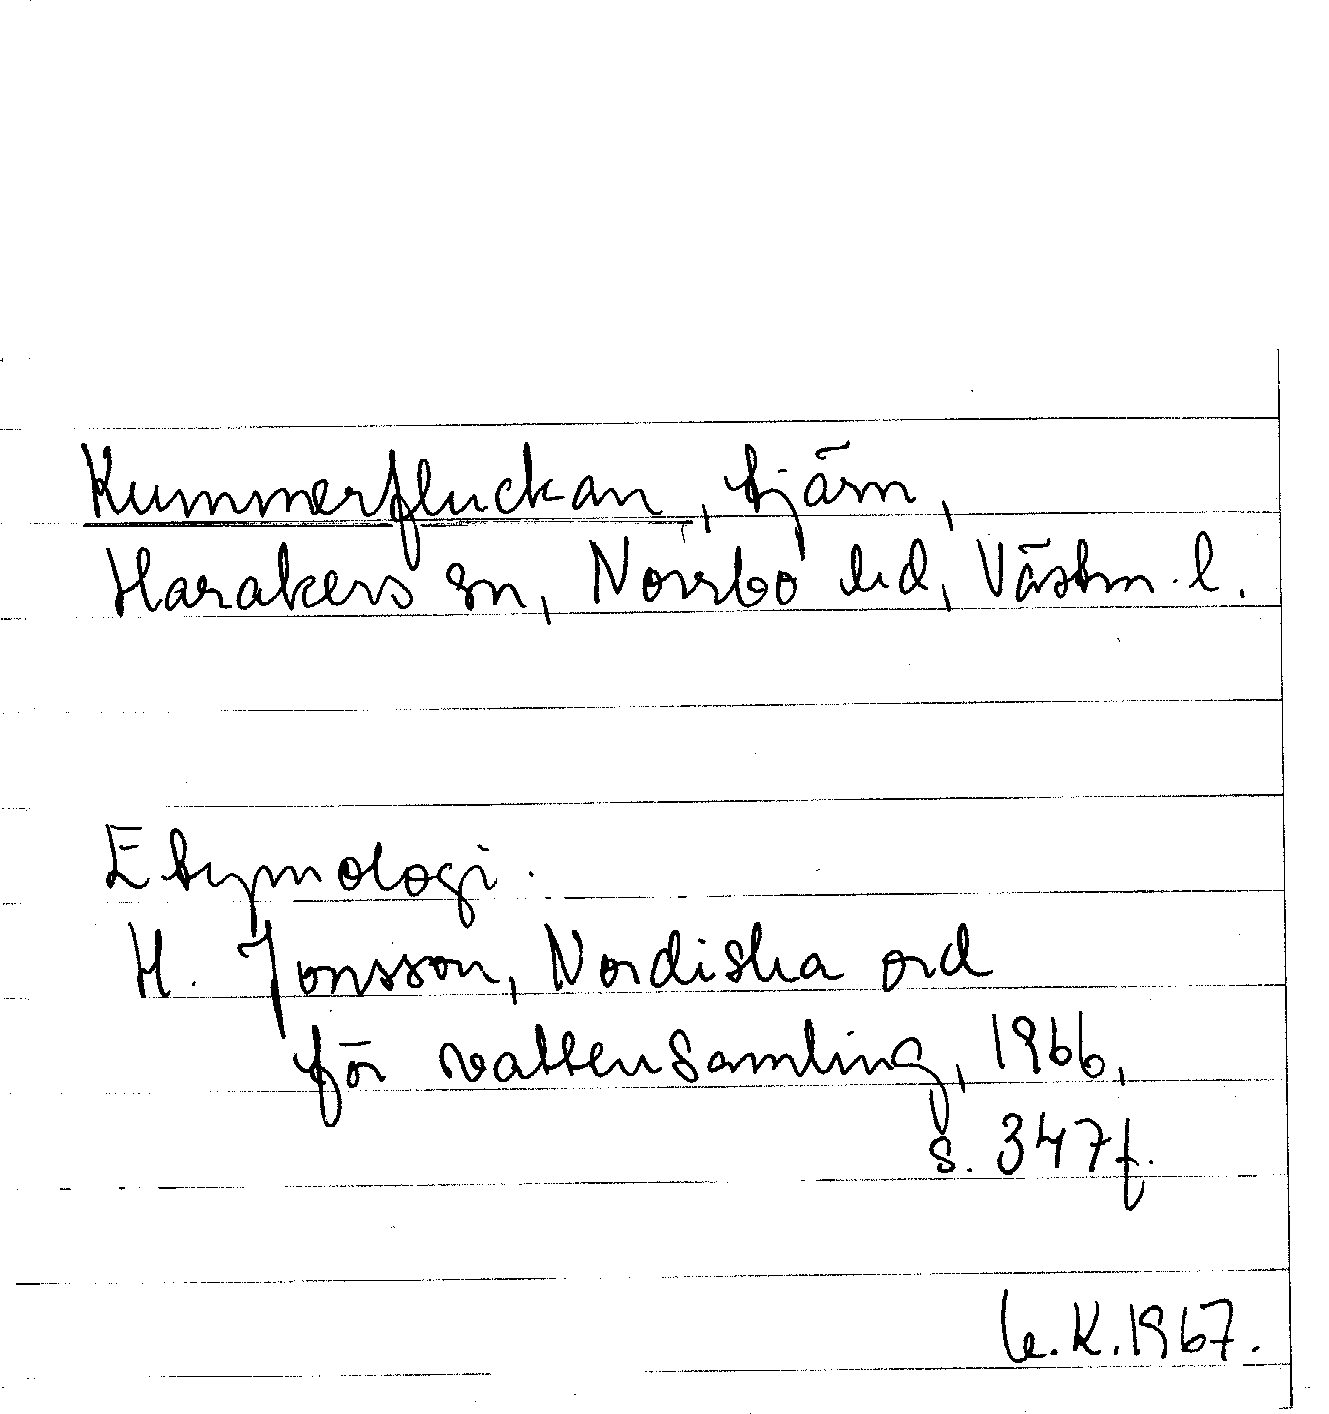 Kummerfluckan, tjärn,
Harakers sn, Norrbo hd, Västm. l.
Etymologi.
H. Jonsson, Nordiska ord
för vattensamling, 1966,
s. 347 f.
K. 1967.